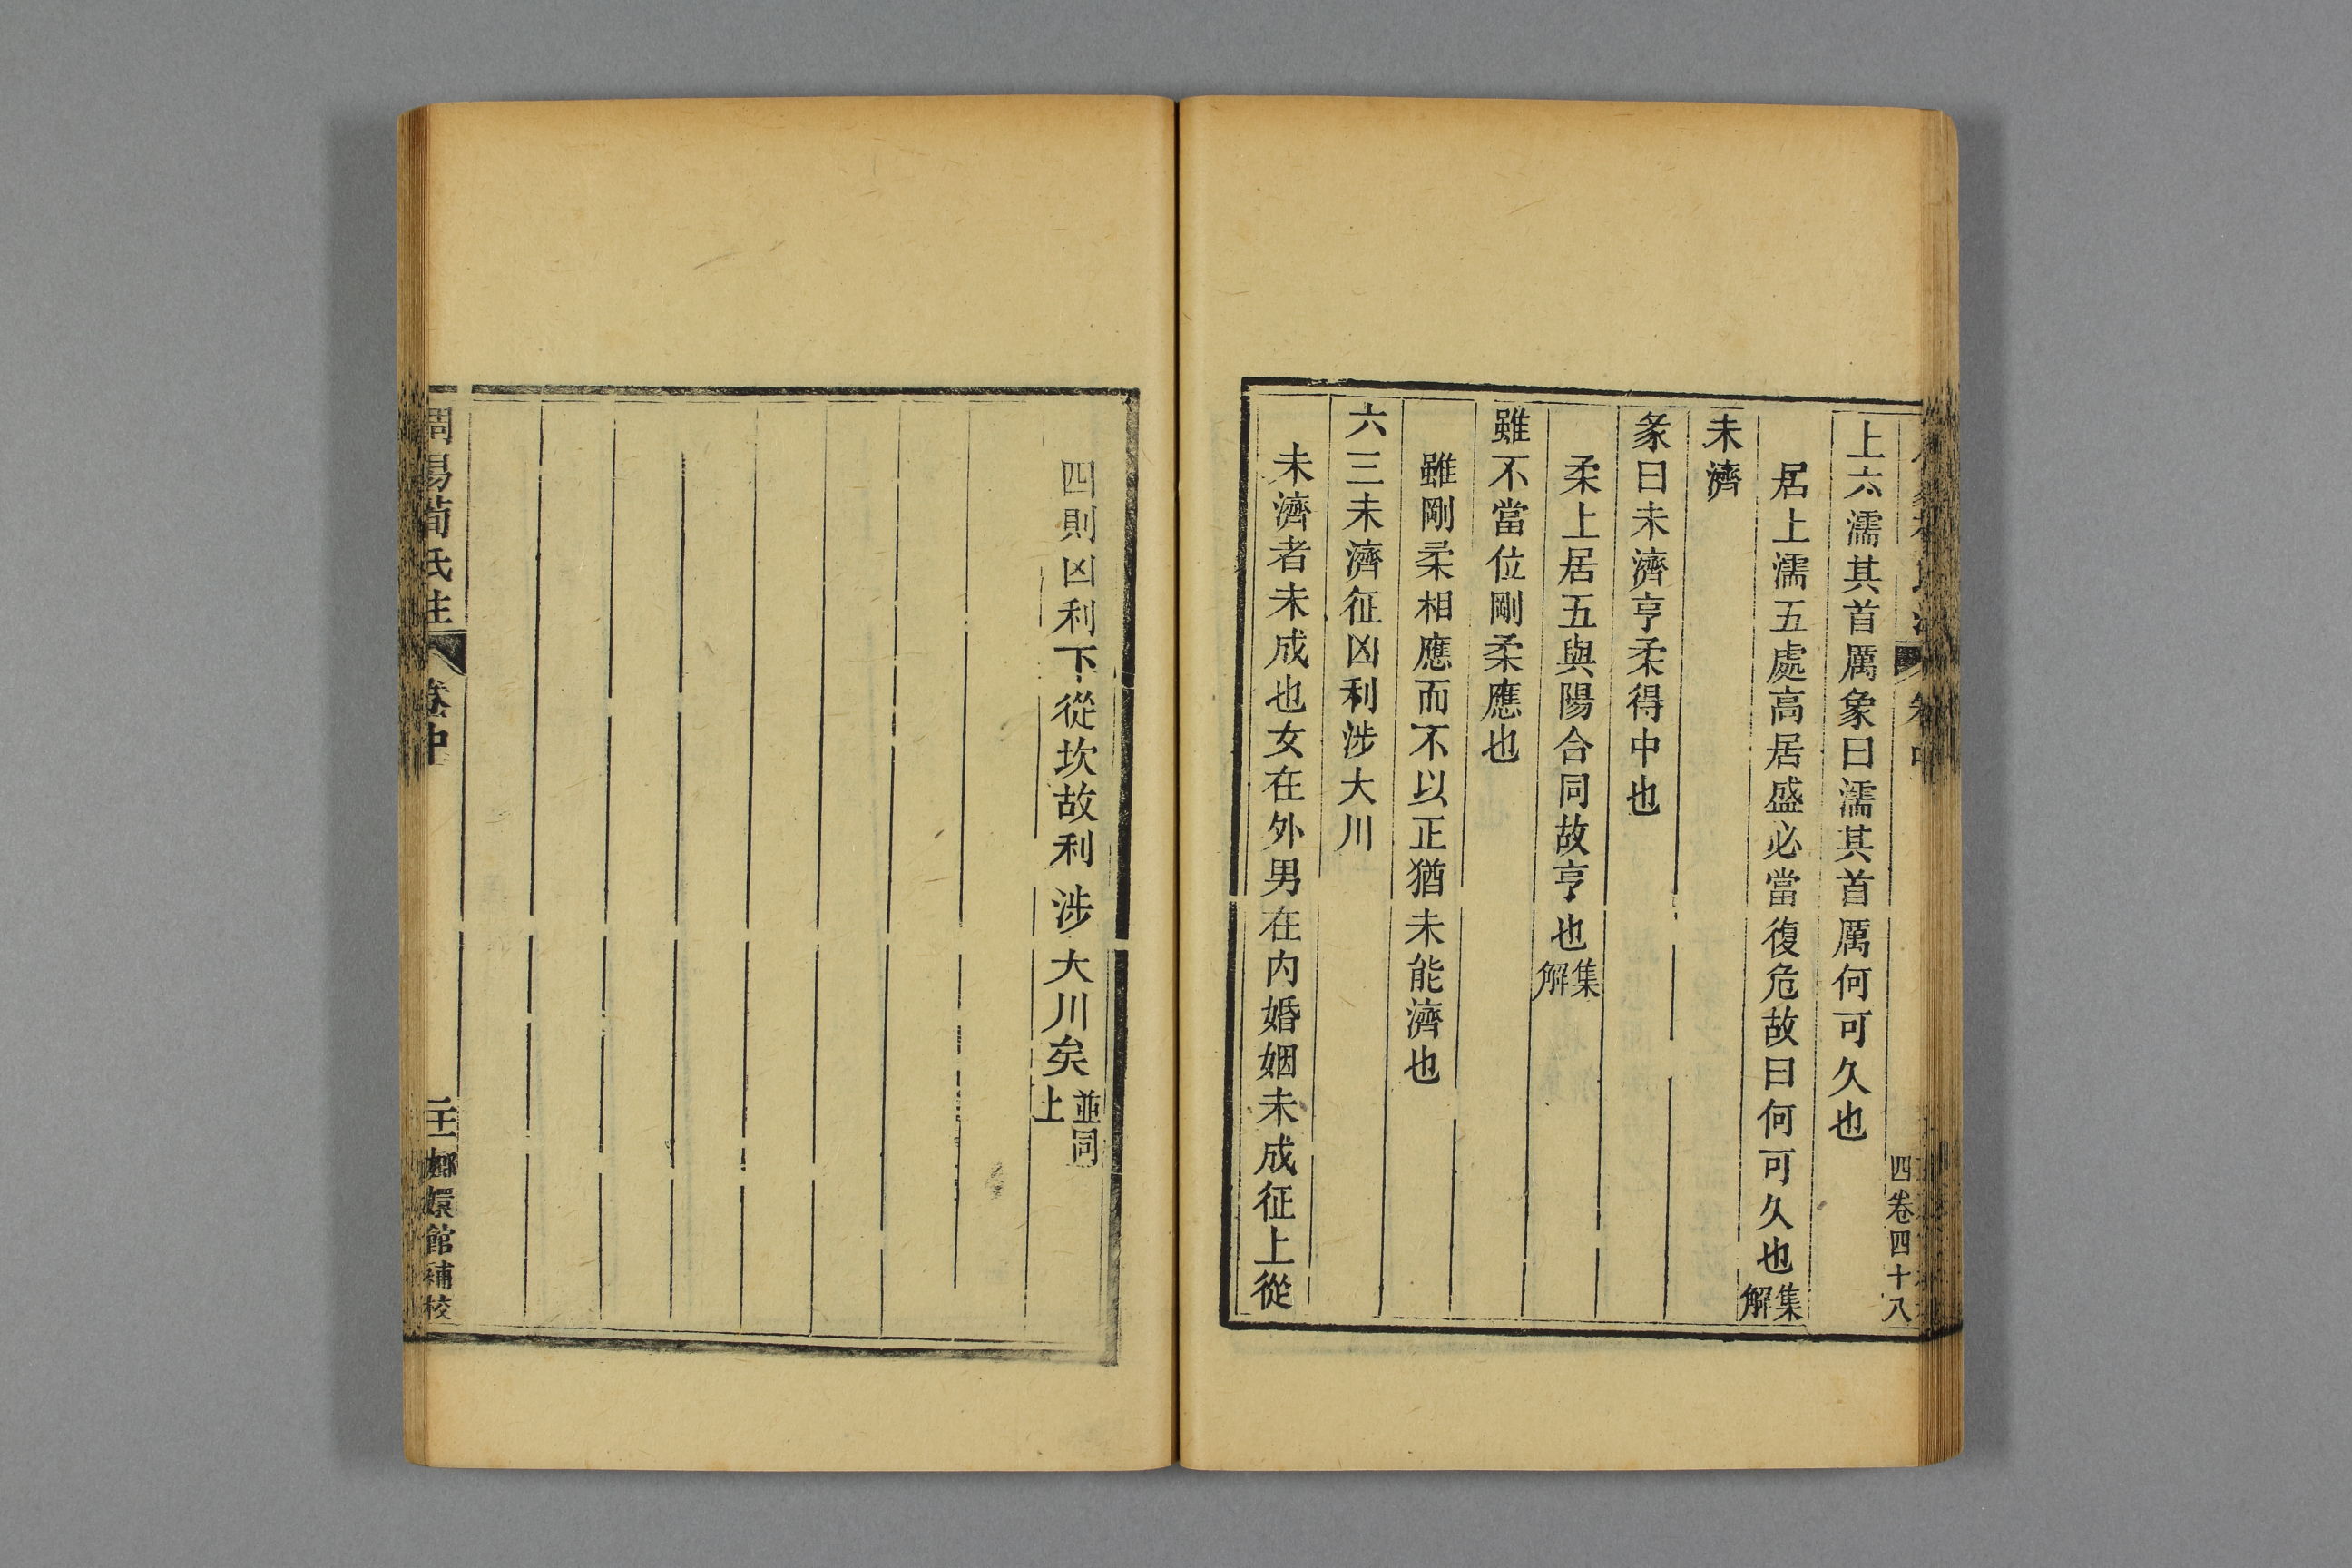 四卷四十八
上六濡其首厲象曰濡其首厲何可久也
居上濡五處高居盛必當復危故曰何可久也集解
未濟
彖曰未濟亨柔得中也
柔上居五與陽合同故亨也集解
雖不當位剛柔應也
雖剛柔相應而不以正猶未能濟也
六三未濟征凶利涉大川
未濟者未成也女在外男在内婚姻未成征上從
四則凶利下從坎故利涉大川矣並同上
周易荀氏注 卷中 嫏嬛館補校